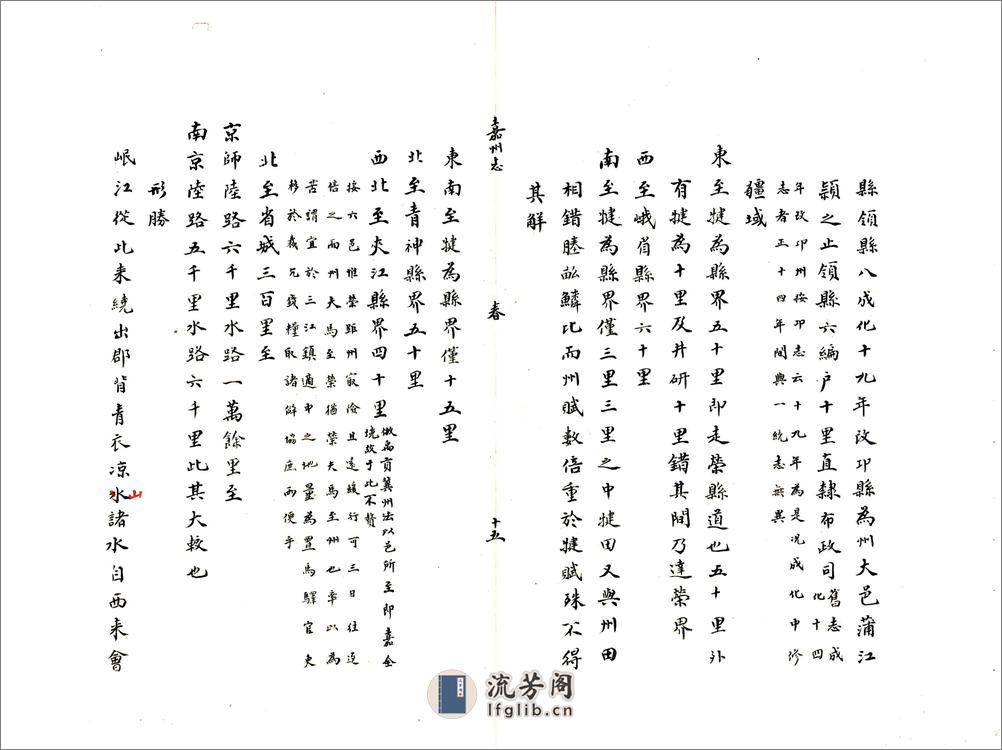 縣領縣八成化十九年改邛縣為州大邑蒲江
潁之止領縣六編户十里直隷布政司舊志成化十四
年改邛州按邛志云十九年為是况成化中修
志者正十四年間與一統志無異
疆域
東至犍為縣界五十里即走榮縣道也五十里外
有犍為十里及井研十里錯其間乃達榮界
西至峨眉縣界六十里
南至犍為縣界僅三里三里之中犍田又與州田
相錯塍畝鱗比而州賦數倍重於犍賦殊不得
其解
嘉州志
卷
十五
東南至犍為縣界僅十五里
北至青神縣界五十里
西北至夹江縣界四十里倣禹貢冀州法以邑所至即嘉全境故于此不贅
按六邑惟榮距州寂險且遠緩行可三日往返
倍之而州夫馬至榮猶榮夫馬至州也率以為
苦謂宜於三江鎮適中之地量為置馬驛官吏
移於裁冗錢糧取諸僻協庶两便乎
北至省城三百里至
京師陸路六千里水路一萬餘里至
南京陸路五千里水路六千里此其大較也
形勝
岷江從此来繞出郡背青衣凉山水諸水自西来會
流芳阁
lfglib.cn